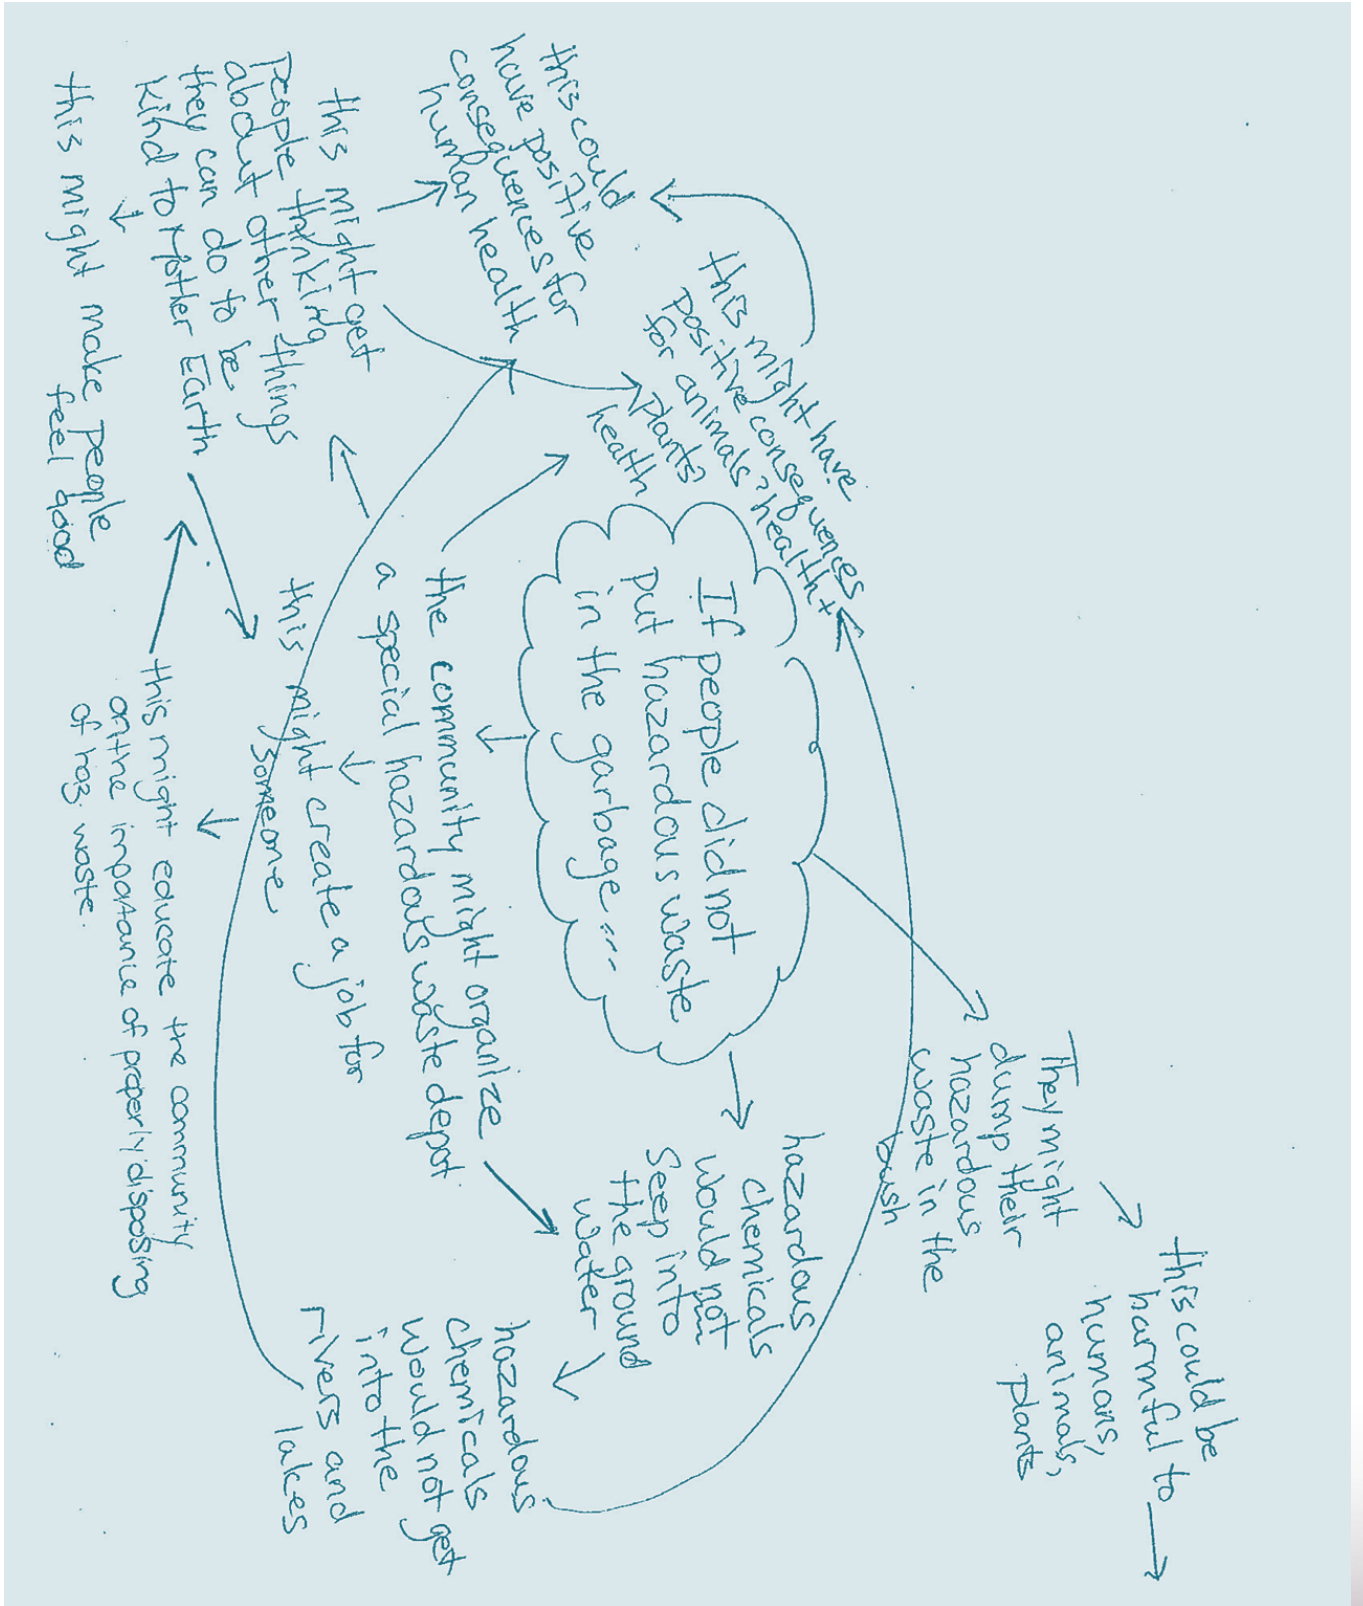 If people did not
put hazardous waste
in the garbage...
They might
dump their
hazardous
waste in the
bush
this could be
harmful to
humans,
animals,
plants
hazardous
chemicals
would not
seep into
the ground
water
hazardous
chemicals
would not get
into the
rivers and
lakes
this might have
positive consequences
for animals' health +
plants'
health
this could
have positive
consequences for
human health
the community might organize
a special hazardous waste depot
this might create a job for
someone
this might educate the community
on the importance of properly disposing
of haz. waste.
this might get
people thinking
about other things
they can do to be
kind to Mother Earth
this might make people
feel good